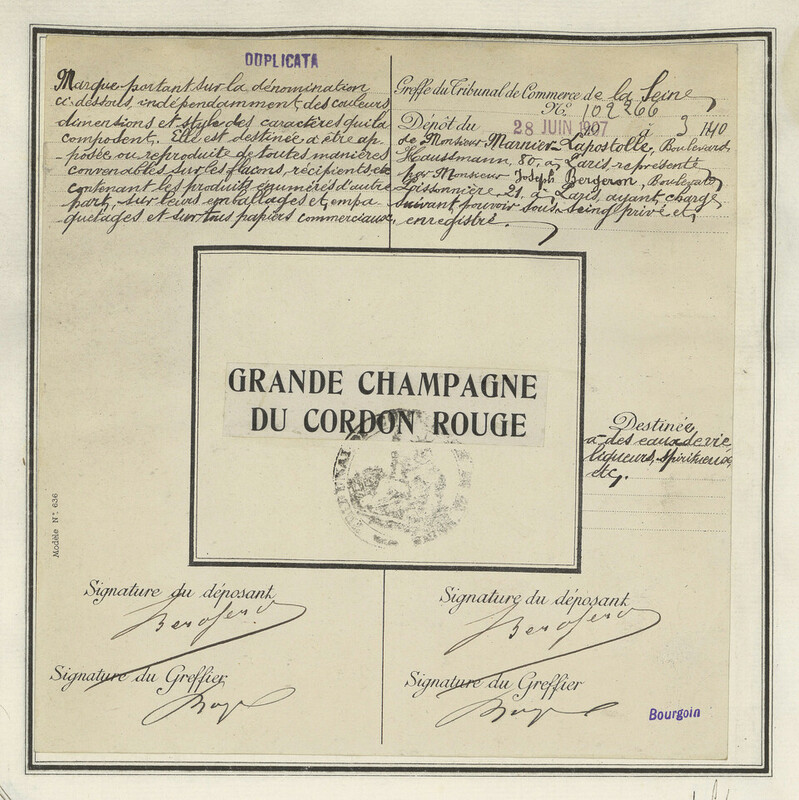 DUPLICATA
Marque portant sur la dénomination
ci-dessous, indépendamment des couleurs
dimensions et style des caractères qui la
composent. Elle est destinée à être ap-
-posée ou reproduite de toutes manières
convenables sur les flacons, récipients etc
contenant les produits énumérés d'autre
part, sur leurs emballages et empa-
quetages et sur tous papiers commerciaux.
Greffe du Tribunal de Commerce de la Seine
No. 102266
Dépôt du 28 JUIN 1907 à 3 h 40
de Monsieur Marnier-Lapostolle, Boulevard
Haussmann, 80, à Paris, représenté
par Monsieur Joseph Bergeron, Boulevard
Poissonnière 21, à Paris, ayant charge
suivant pouvoir sous-seing privé et
enregistré.
GRANDE CHAMPAGNE
DU CORDON ROUGE
Destinée
à des eaux de vie,
liqueurs, spiritueux,
etc.
Modèle No. 636
Signature du déposant
Signature du Greffier
Signature du déposant
Signature du Greffier
Bourgoin